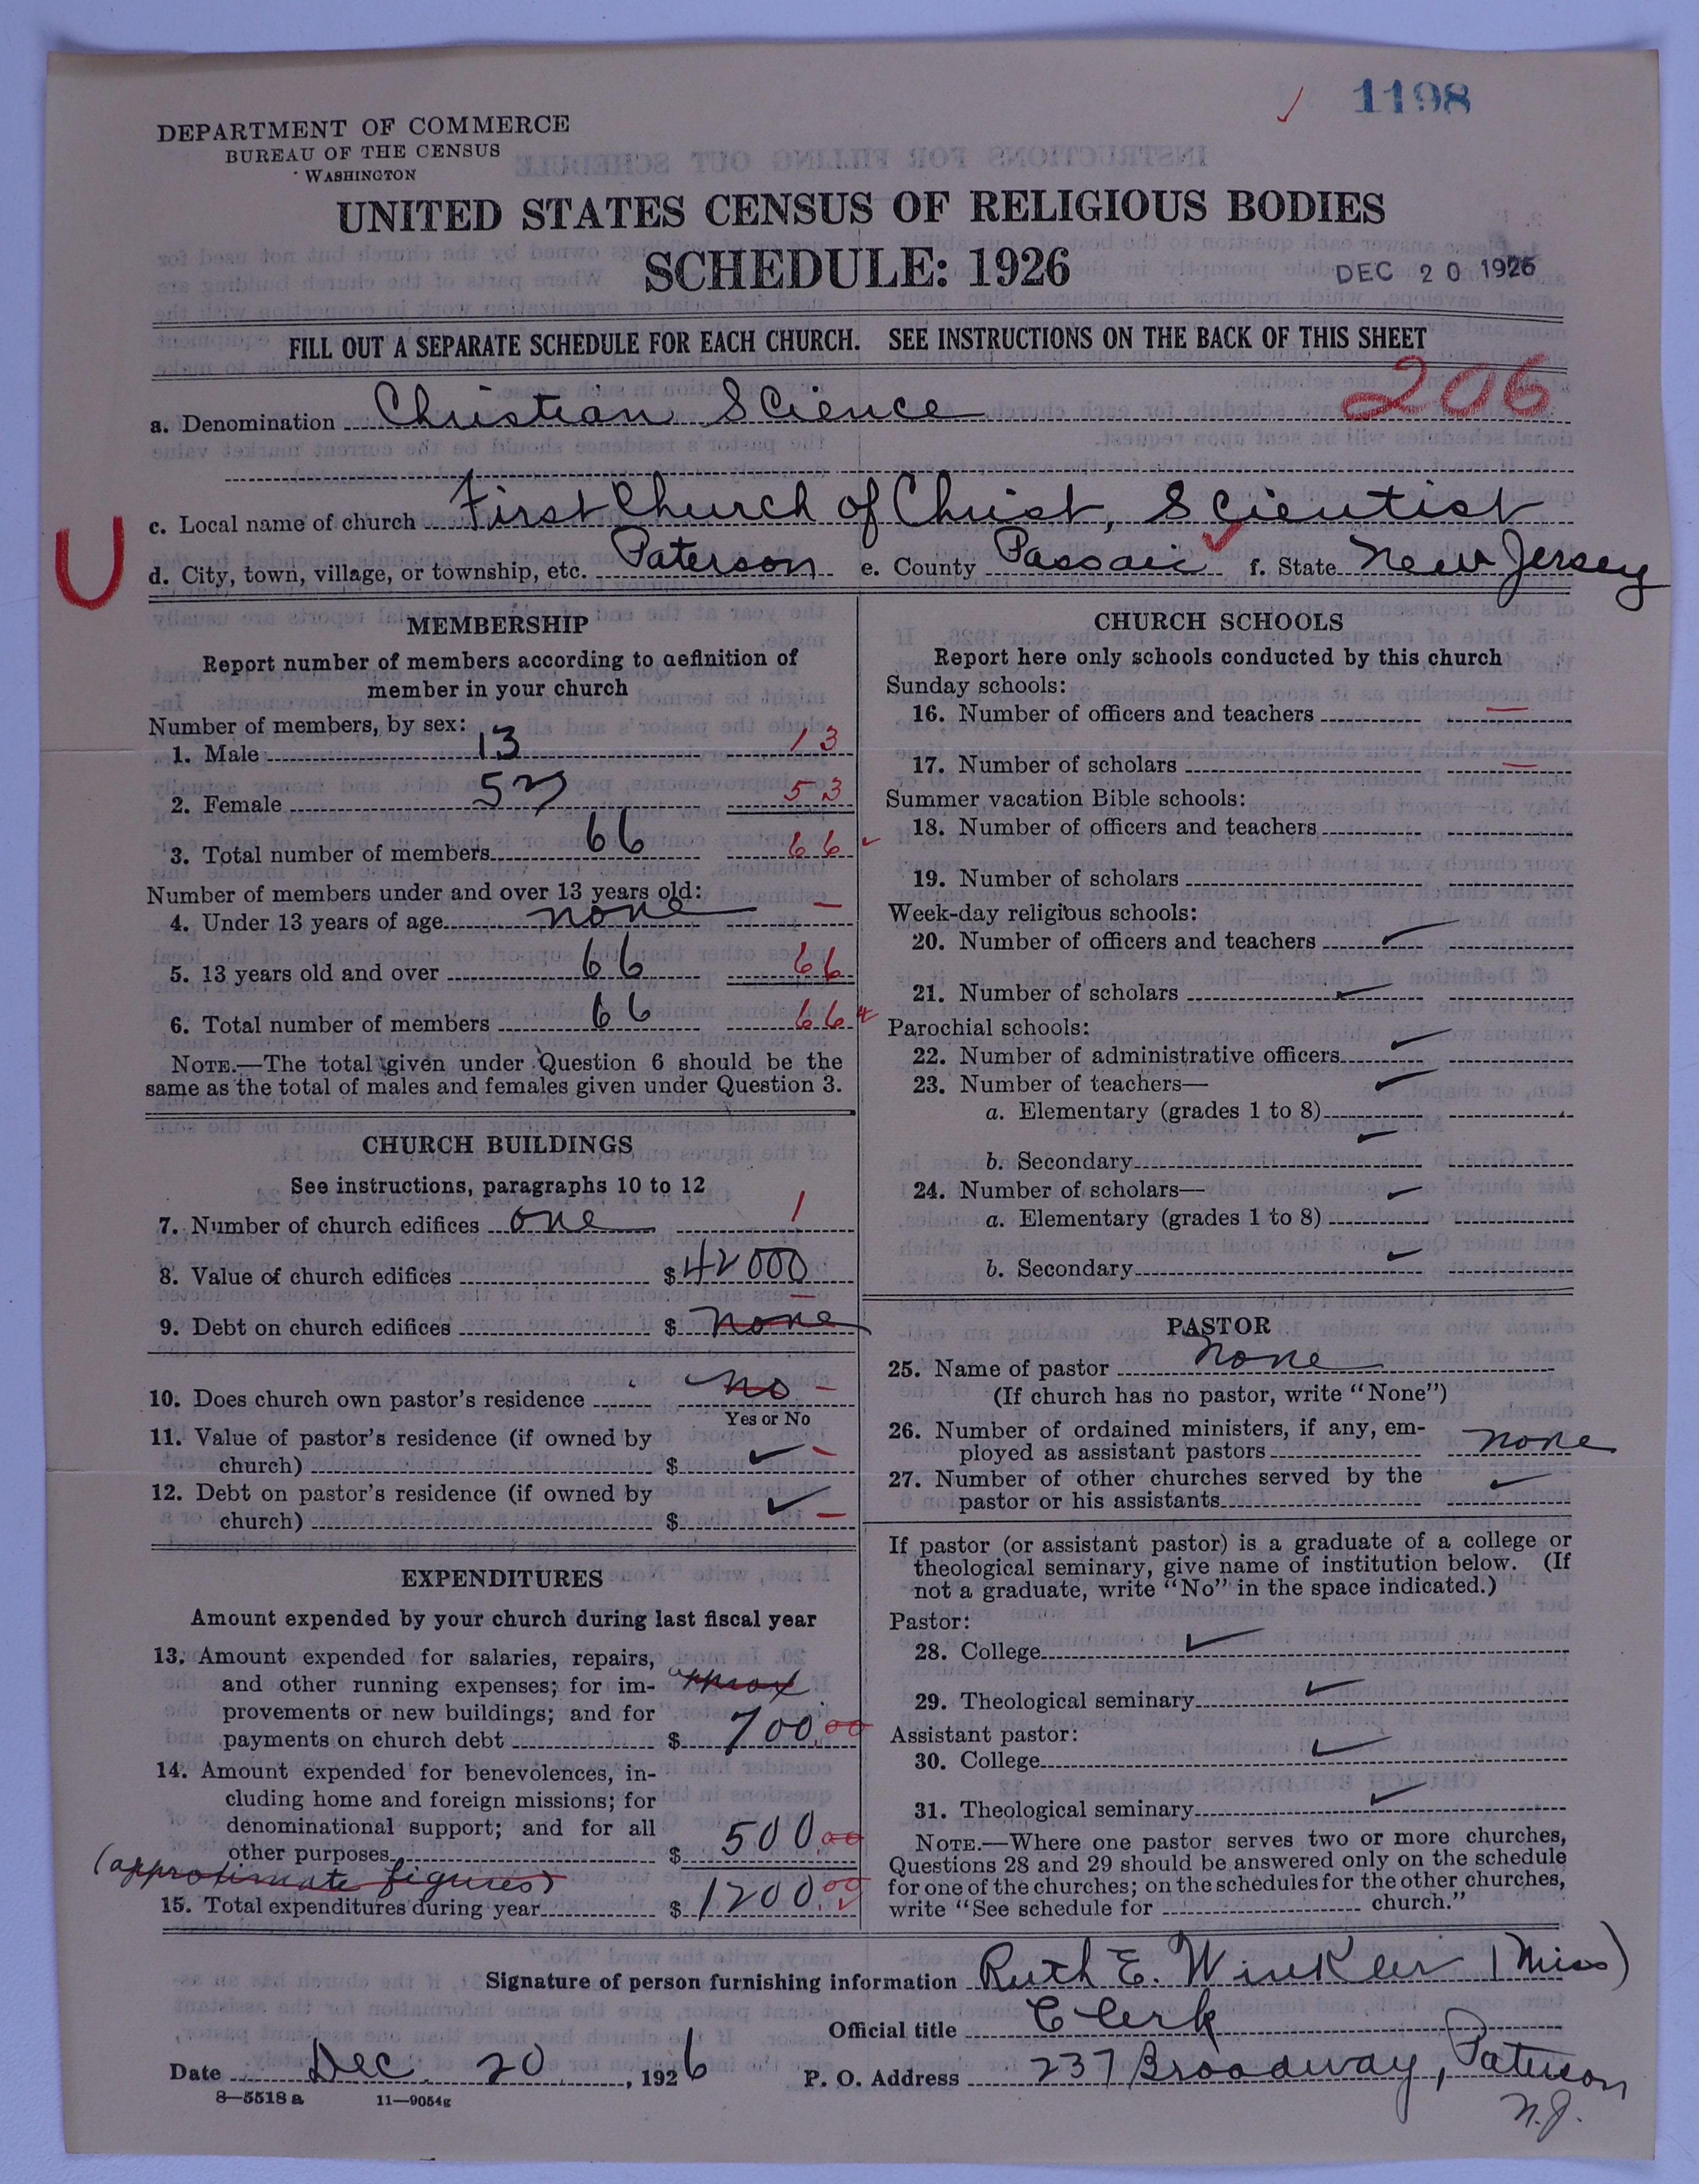 1198
DEPARTMENT OF COMMERCE
BUREAU OF THE CENSUS
WASHINGTON
UNITED STATES CENSUS OF RELIGIOUS BODIES
SCHEDULE: 1926
DEC 20 1926
FILL OUT A SEPARATE SCHEDULE FOR EACH CHURCH. SEE INSTRUCTIONS ON THE BACK OF THIS SHEET
206
a. Denomination Christian Science
c. Local name of church First Church of Christ, Scientist
U
d. City, town, village, or township, etc. Paterson e. County Passaic f. State New Jersey
MEMBERSHIP
Report number of members according to definition of
member in your church
Number of members, by sex:
1. Male 13 13
2. Female 53 53
3. Total number of members 66 66
Number of members under and over 13 years old:
4. Under 13 years of age none –
5. 13 years old and over 66 66
6. Total number of members 66 66
NOTE.—The total given under Question 6 should be the
same as the total of males and females given under Question 3.
CHURCH BUILDINGS
See instructions, paragraphs 10 to 12
7. Number of church edifices one 1
8. Value of church edifices $ 42000
9. Debt on church edifices $ none
10. Does church own pastor's residence no –
Yes or No
11. Value of pastor's residence (if owned by
church) $ ✓ –
12. Debt on pastor's residence (if owned by
church) $ ✓ –
EXPENDITURES
Amount expended by your church during last fiscal year
13. Amount expended for salaries, repairs,
and other running expenses; for im- approx
provements or new buildings; and for
payments on church debt $ 700.00
14. Amount expended for benevolences, in-
cluding home and foreign missions; for
denominational support; and for all
other purposes $ 500.00
(approximate figures)
15. Total expenditures during year $ 1200.00
CHURCH SCHOOLS
Report here only schools conducted by this church
Sunday schools:
16. Number of officers and teachers –
17. Number of scholars –
Summer vacation Bible schools:
18. Number of officers and teachers
19. Number of scholars
Week-day religious schools:
20. Number of officers and teachers ✓
21. Number of scholars ✓
Parochial schools:
22. Number of administrative officers ✓
23. Number of teachers— ✓
a. Elementary (grades 1 to 8)
b. Secondary ✓
24. Number of scholars— ✓
a. Elementary (grades 1 to 8)
b. Secondary ✓
PASTOR
25. Name of pastor none
(If church has no pastor, write "None")
26. Number of ordained ministers, if any, em-
ployed as assistant pastors none
27. Number of other churches served by the
pastor or his assistants ✓
If pastor (or assistant pastor) is a graduate of a college or
theological seminary, give name of institution below. (If
not a graduate, write "No" in the space indicated.)
Pastor:
28. College ✓
29. Theological seminary ✓
Assistant pastor:
30. College ✓
31. Theological seminary ✓
NOTE.—Where one pastor serves two or more churches,
Questions 28 and 29 should be answered only on the schedule
for one of the churches; on the schedules for the other churches,
write "See schedule for church."
Signature of person furnishing information Ruth E. Winkler (Miss)
Official title Clerk
Date Dec. 20, 1926 P. O. Address 237 Broadway, Paterson
N.J.
8—5518 a 11—9054g